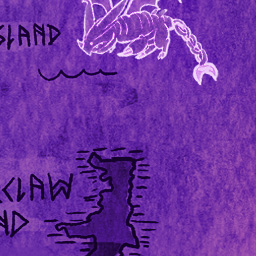 SLAND
CLAW
ND